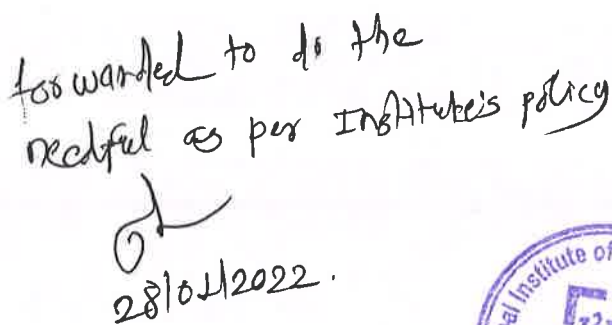 forwarded to do the
needful as per Institute's policy
28/01/2022.
al Institute of